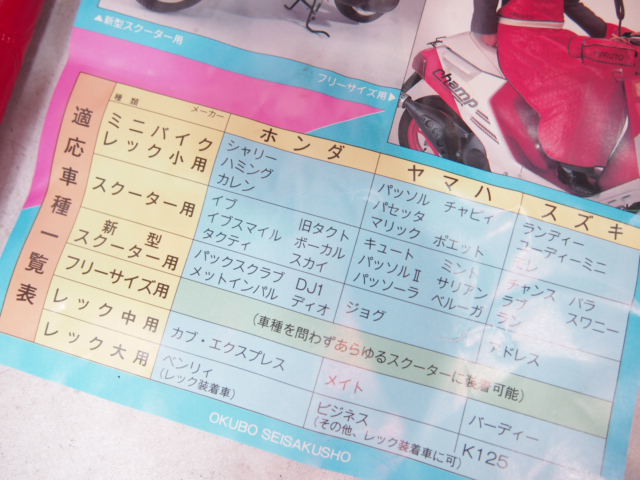 ▲新型スクーター用
フリーサイズ用▶
champ
適応車種一覧表
種類 メーカー ホンダ ヤマハ スズキ
ミニバイク
レック小用
シャリー
ハミング
カレン
スクーター用
イブ
イブスマイル 旧タクト
タクティ ボーカル
スカイ
パッソル チャピィ
パセッタ
マリック ポエット
キュート ミント
パッソルⅡ サリアン
パッソーラ ベルーガ
ランディー
ユーディーミニ
ミレ
チャンス パラ
ラブ スワニー
ラン
新型
スクーター用
パックスクラブ DJ1
メットインパル ディオ
ジョグ
アドレス
フリーサイズ用
(車種を問わずあらゆるスクーターに装着可能)
レック中用
カブ・エクスプレス
メイト
バーディー
レック大用
ベンリィ
(レック装着車)
ビジネス
(その他、レック装着車に可)
K125
OKUBO SEISAKUSHO